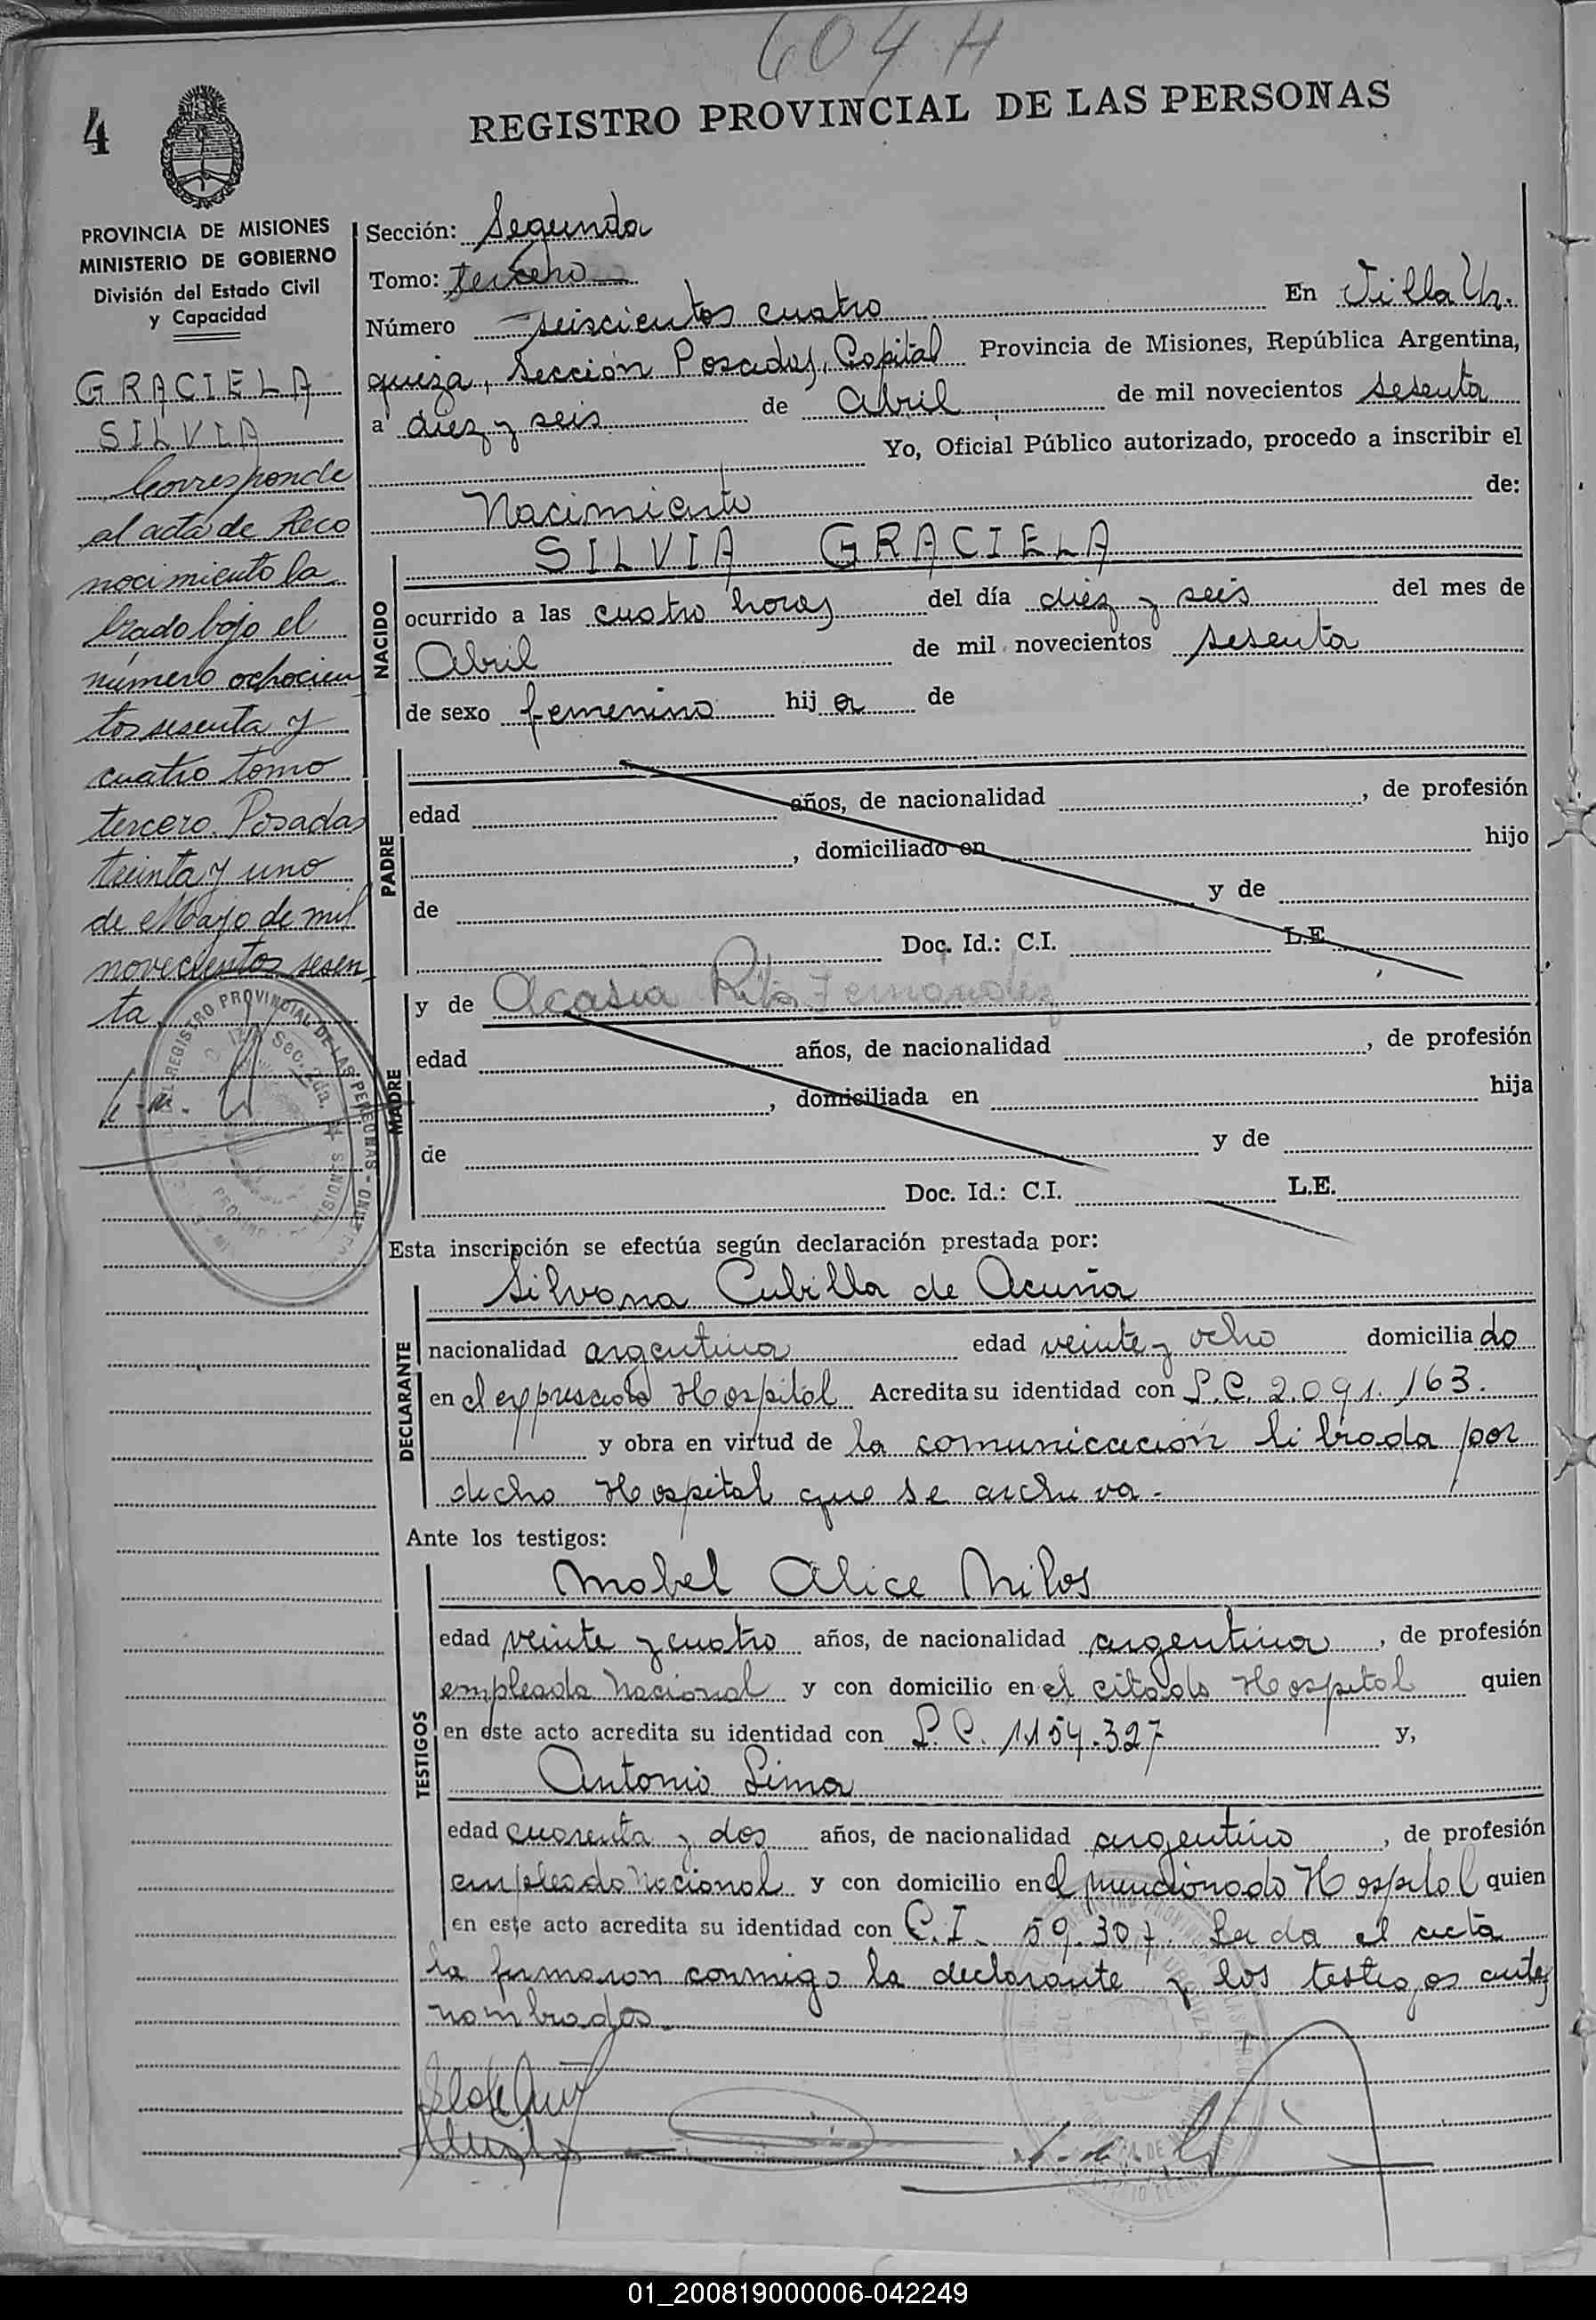 604 H
4
REGISTRO PROVINCIAL DE LAS PERSONAS
PROVINCIA DE MISIONES
MINISTERIO DE GOBIERNO
División del Estado Civil
y Capacidad
GRACIELA
SILVIA
Corresponde
al acta de Reco
nocimiento la
brado bajo el
número ochocien
tos sesenta y
cuatro tomo
tercero. Posadas
treinta y uno
de Mayo de mil
novecientos sesen
ta.
Sección: Segunda
Tomo: tercero
Número seiscientos cuatro En Villa Ur.
quiza, Sección Posadas, Capital Provincia de Misiones, República Argentina,
a diez y seis de Abril de mil novecientos sesenta
Yo, Oficial Público autorizado, procedo a inscribir el
Nacimiento de:
NACIDO
SILVIA GRACIELA
ocurrido a las cuatro horas del día diez y seis del mes de
Abril de mil novecientos sesenta
de sexo femenino hij a de
PADRE
edad años, de nacionalidad , de profesión
, domiciliado en hijo
de y de
Doc. Id.: C.I. L.E.
MADRE
y de Acasia Rita Fernandez
edad años, de nacionalidad , de profesión
, domiciliada en hija
de y de
Doc. Id.: C.I. L.E.
Esta inscripción se efectúa según declaración prestada por:
DECLARANTE
Silvana Cubilla de Acuña
nacionalidad argentina edad veinte y ocho domicilia do
en el expresado Hospital Acredita su identidad con L.C. 2.091.163.
y obra en virtud de la comunicación librada por
dicho Hospital que se archiva.-
Ante los testigos:
TESTIGOS
Mabel Alice Milos
edad veinte y cuatro años, de nacionalidad argentina , de profesión
empleada Nacional y con domicilio en el citado Hospital quien
en este acto acredita su identidad con L.C. 1.154.327 y,
Antonio Lima
edad cuarenta y dos años, de nacionalidad argentino , de profesión
empleado Nacional y con domicilio en el mencionado Hospital quien
en este acto acredita su identidad con C.I. 59.307. Leida el acta
la firmaron conmigo la declarante y los testigos antes
nombrados.
REGISTRO PROVINCIAL DE LAS PERSONAS
Sec. 2da.
01_200819000006-042249